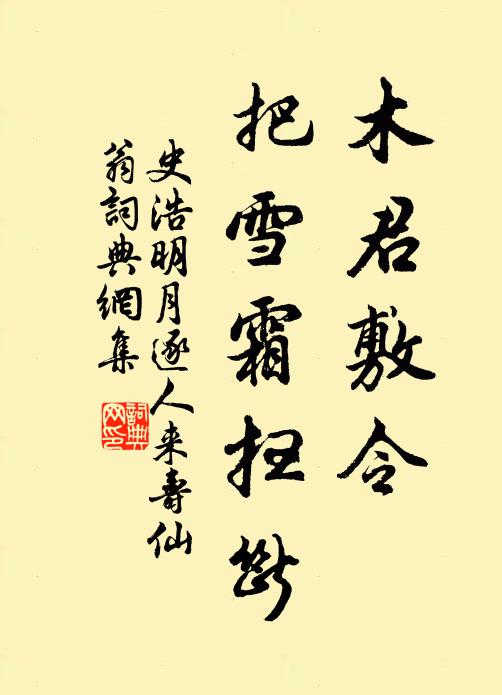 木君敷令
把雪霜扫断
史浩明月逐人来寿仙
翁词典网集
詞典
网印